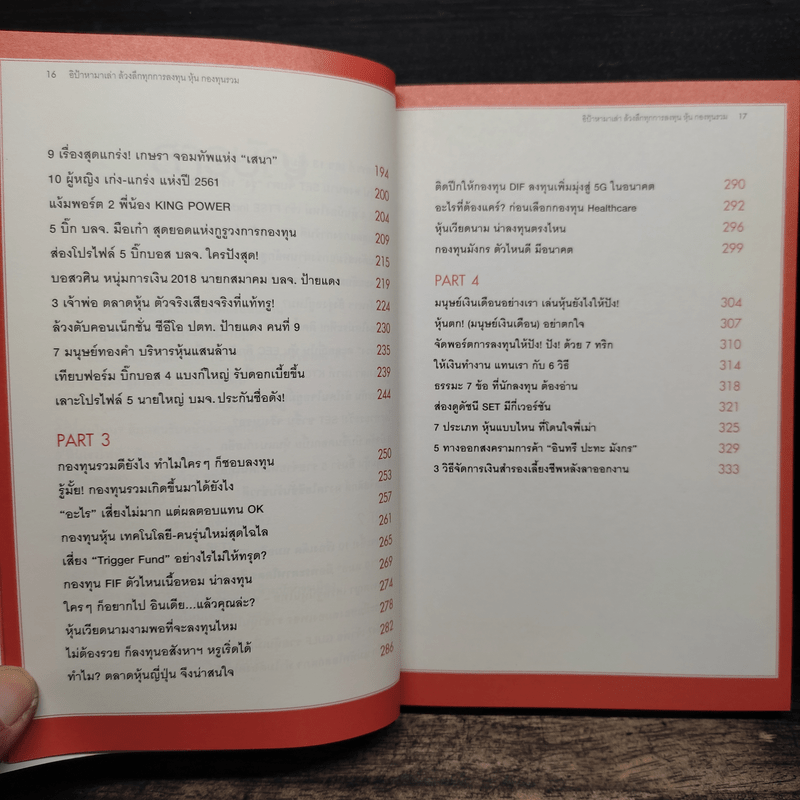 16 อีป้าหามาเล่า ล้วงลึกทุกการลงทุน หุ้น กองทุนรวม
9 เรื่องสุดแกร่ง! เกษรา จอมทัพแห่ง “เสนา” 194
10 ผู้หญิง เก่ง-แกร่ง แห่งปี 2561 200
แง้มพอร์ต 2 พี่น้อง KING POWER 204
5 บิ๊ก บลจ. มือเก๋า สุดยอดแห่งกูรูวงการกองทุน 209
ส่องโปรไฟล์ 5 บิ๊กบอส บลจ. ใครปังสุด! 215
บอสวศิน หนุ่มการเงิน 2018 นายกสมาคม บลจ. ป้ายแดง 219
3 เจ้าพ่อ ตลาดหุ้น ตัวจริงเสียงจริงที่แท้ทรู! 224
ล้วงตับคอนเน็กชั่น ซีอีโอ ปตท. ป้ายแดง คนที่ 9 230
7 มนุษย์ทองคำ บริหารหุ้นแสนล้าน 235
เทียบฟอร์ม บิ๊กบอส 4 แบงก์ใหญ่ รับดอกเบี้ยขึ้น 239
เลาะโปรไฟล์ 5 นายใหญ่ บมจ.ประกันชื่อดัง! 244
PART 3
กองทุนรวมดียังไง ทำไมใครๆ ก็ชอบลงทุน 250
รู้มั้ย! กองทุนรวมเกิดขึ้นมาได้ยังไง 253
“อะไร” เสี่ยงไม่มาก แต่ผลตอบแทน OK 257
กองทุนหุ้น เทคโนโลยี-คนรุ่นใหม่สุดไฉไล 261
เสี่ยง “Trigger Fund” อย่างไรไม่ให้ทรุด? 265
กองทุน FIF ตัวไหนเนื้อหอม น่าลงทุน 269
ใครๆ ก็อยากไป อินเดีย...แล้วคุณล่ะ? 274
หุ้นเวียดนามงามพอที่จะลงทุนไหม 278
ไม่ต้องรวย ก็ลงทุนอสังหาฯ หรูเริ่ดได้ 282
ทำไม? ตลาดหุ้นญี่ปุ่น จึงน่าสนใจ 286
อีป้าหามาเล่า ล้วงลึกทุกการลงทุน หุ้น กองทุนรวม 17
ติดปีกให้กองทุน DIF ลงทุนเพิ่มมุ่งสู่ 5G ในอนาคต 290
อะไรที่ต้องแคร์? ก่อนเลือกกองทุน Healthcare 292
หุ้นเวียดนาม น่าลงทุนตรงไหน 296
กองทุนมังกร ตัวไหนดี มีอนาคต 299
PART 4
มนุษย์เงินเดือนอย่างเรา เล่นหุ้นยังไงให้ปัง! 304
หุ้นตก! (มนุษย์เงินเดือน) อย่าตกใจ 307
จัดพอร์ตการลงทุนให้ปัง! ปัง! ด้วย 7 ทริก 310
ให้เงินทำงาน แทนเรา กับ 6 วิธี 314
ธรรมะ 7 ข้อ ที่นักลงทุน ต้องอ่าน 318
ส่องดูดัชนี SET มีกี่เวอร์ชัน 321
7 ประเภท หุ้นแบบไหน ที่โดนใจพี่เม่า 325
5 ทางออกสงครามการค้า “อินทรี ปะทะ มังกร” 329
3 วิธีจัดการเงินสำรองเลี้ยงชีพหลังลาออกงาน 333